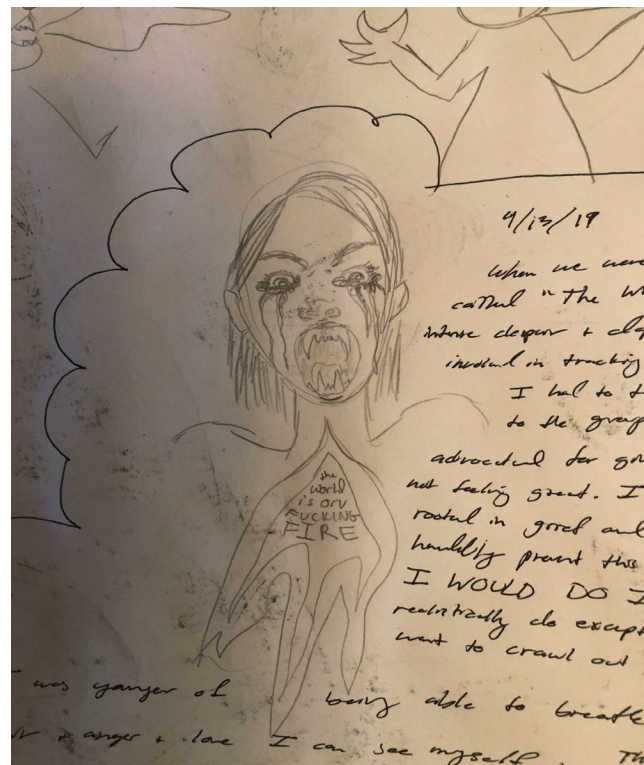 the
world
is on
FUCKING
FIRE
4/13/19
When we were
called "The W
intense despair + 
involved in tracking
I had to t
to the group
advocated for
not feeling great. I
rooted in grief and
humbly present this
I WOULD DO I
realistically do except
want to crawl out
was younger of being able to breathe
+ anger + love I can see myself. Th